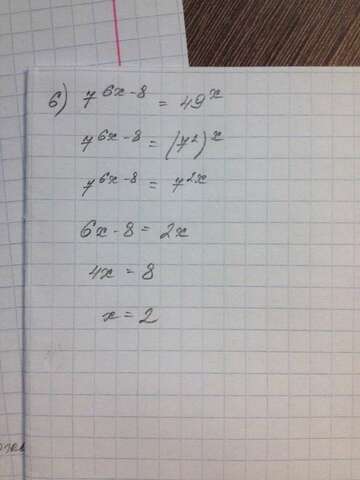 б) 7^{6x-8} = 49^x
7^{6x-8} = (7^2)^x
7^{6x-8} = 7^{2x}
6x - 8 = 2x
4x = 8
x = 2